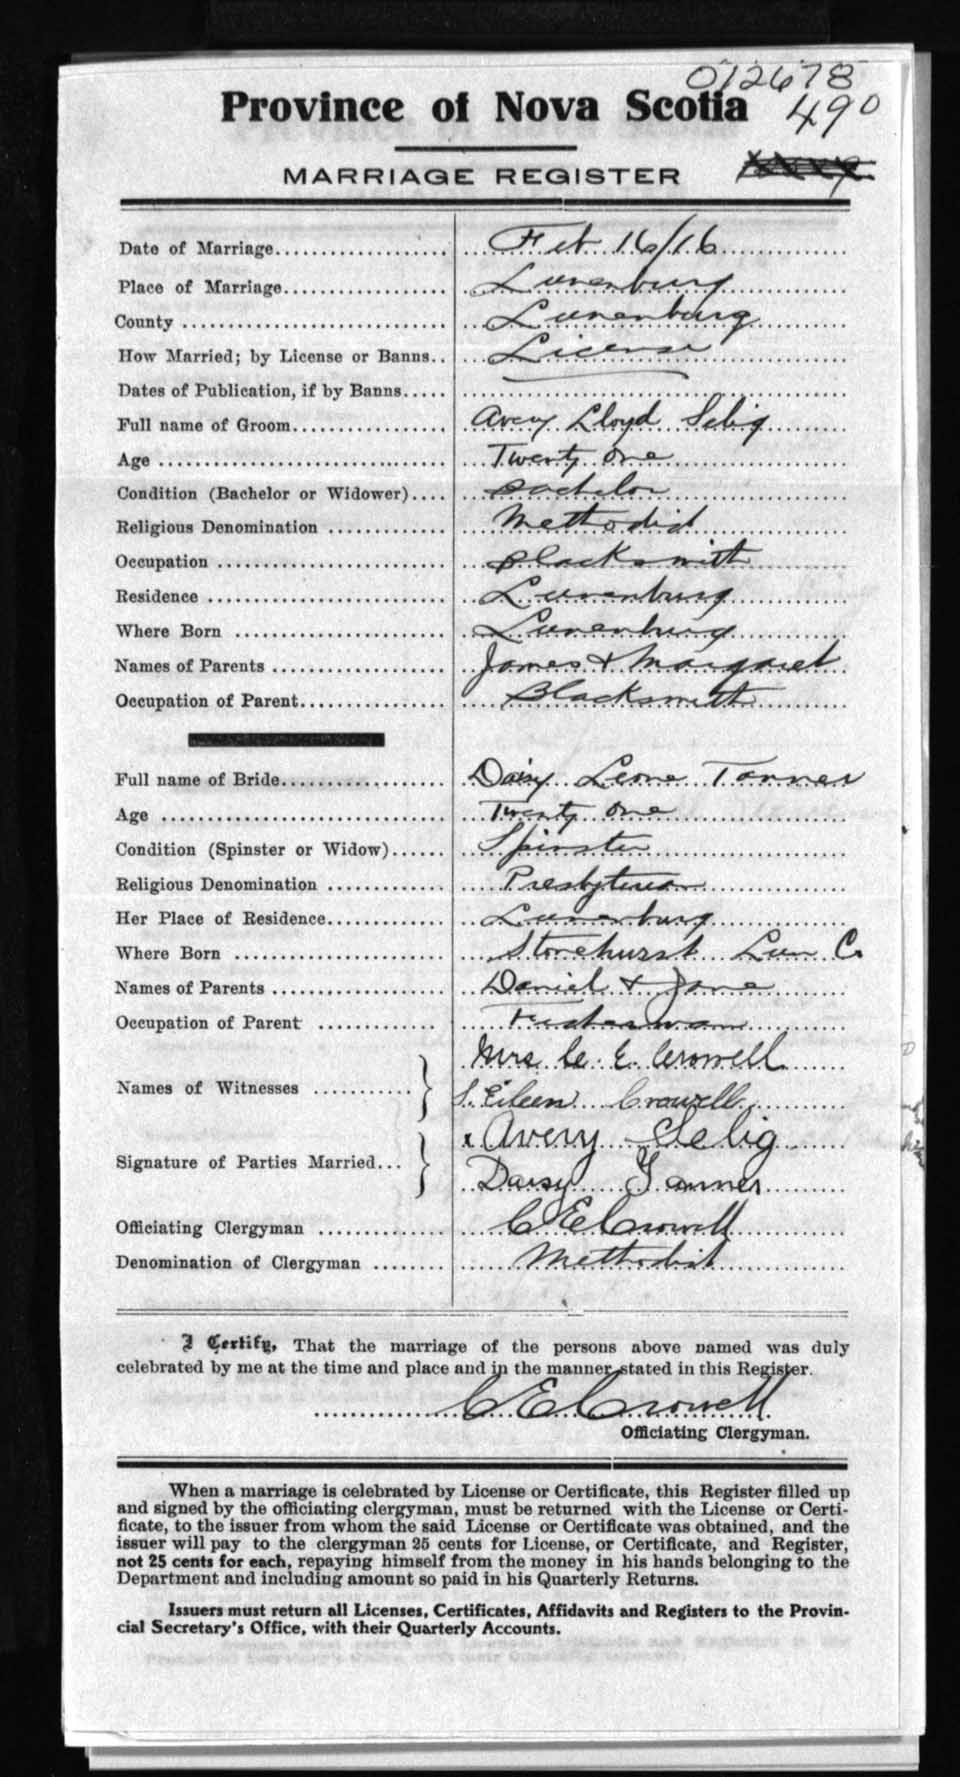 012678
Province of Nova Scotia
490
MARRIAGE REGISTER
Date of Marriage.................... Feb 16/16
Place of Marriage................... Lunenburg
County .............................. Lunenburg
How Married; by License or Banns.. License
Dates of Publication, if by Banns.....
Full name of Groom.................. Avery Lloyd Selig
Age .................................. Twenty One
Condition (Bachelor or Widower).... Bachelor
Religious Denomination .............. Methodist
Occupation ........................... Blacksmith
Residence ............................ Lunenburg
Where Born ......................... Lunenburg
Names of Parents .................... James & Margaret
Occupation of Parent................. Blacksmith
Full name of Bride................... Daisy Leone Tanner
Age .................................. Twenty One
Condition (Spinster or Widow)...... Spinster
Religious Denomination .............. Presbyterian
Her Place of Residence.............. Lunenburg
Where Born ......................... Stonehurst Lun C.
Names of Parents .................... Daniel & Jane
Occupation of Parent .............. Fisherman
Mrs C. E. Crowell
Names of Witnesses ...........
S. Eileen Crowell
x Avery Selig
Signature of Parties Married...
Daisy Tanner
Officiating Clergyman ............... C E Crowell
Denomination of Clergyman ........ Methodist
I Certify, That the marriage of the persons above named was duly
celebrated by me at the time and place and in the manner stated in this Register.
C E Crowell
Officiating Clergyman.
When a marriage is celebrated by License or Certificate, this Register filled up
and signed by the officiating clergyman, must be returned with the License or Certi-
ficate, to the issuer from whom the said License or Certificate was obtained, and the
issuer will pay to the clergyman 25 cents for License, or Certificate, and Register,
not 25 cents for each, repaying himself from the money in his hands belonging to the
Department and including amount so paid in his Quarterly Returns.
Issuers must return all Licenses, Certificates, Affidavits and Registers to the Provin-
cial Secretary's Office, with their Quarterly Accounts.